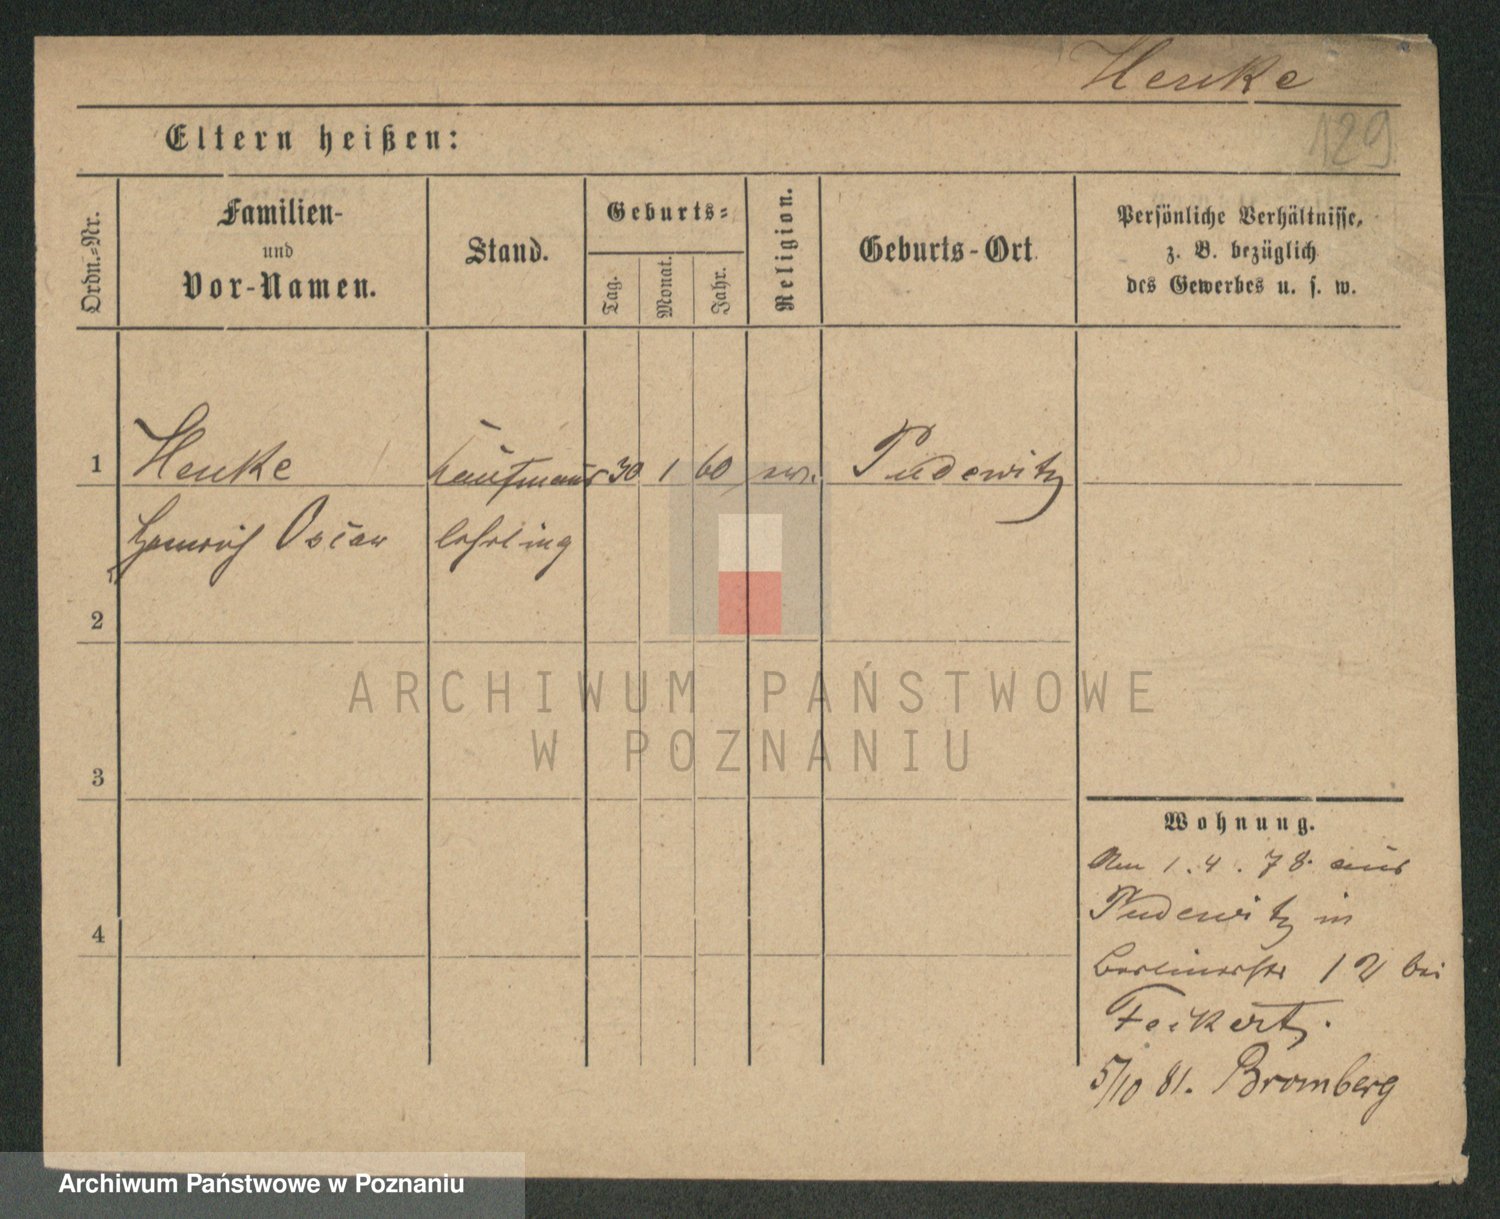 Henke
129
Eltern heißen:
Ordn.-Nr.
Familien-
und
Vor-Namen.
Stand.
Geburts-
Tag.
Monat.
Jahr.
Religion.
Geburts-Ort
Persönliche Verhältnisse,
z. B. bezüglich
des Gewerbes u. s. w.
1 Henke Kaufmanns 30 1 60 ev. Pudewitz
Heinrich Oscar lehrling
2
3
4
Wohnung.
Am 1.4.78. aus
Pudewitz in
Berlinerstr 12 bei
5/10 81. Bromberg
ARCHIWUM PAŃSTWOWE
W POZNANIU
Archiwum Państwowe w Poznaniu